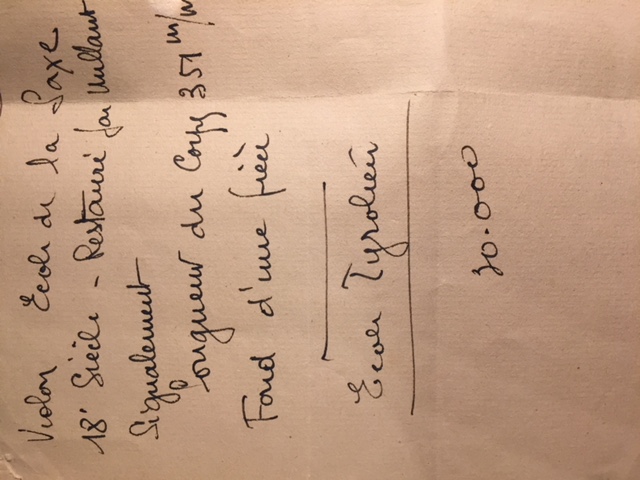 Violon Ecole de la Saxe
18e Siècle - Restauré par Vuillaume
Signalement
Longueur du Corps 351 m/m
Fond d'une pièce
Ecole Tyrolien
30.000